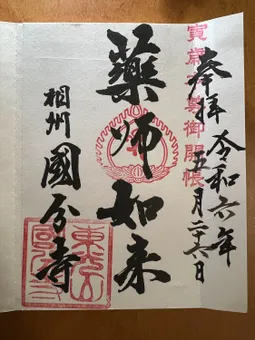 寅歳本尊御開帳
奉拝
令和六年
五月二十六日
藥師如来
相州
國分寺
東光山
國分寺